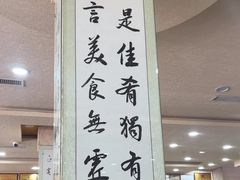 是佳肴獨有
言美食無